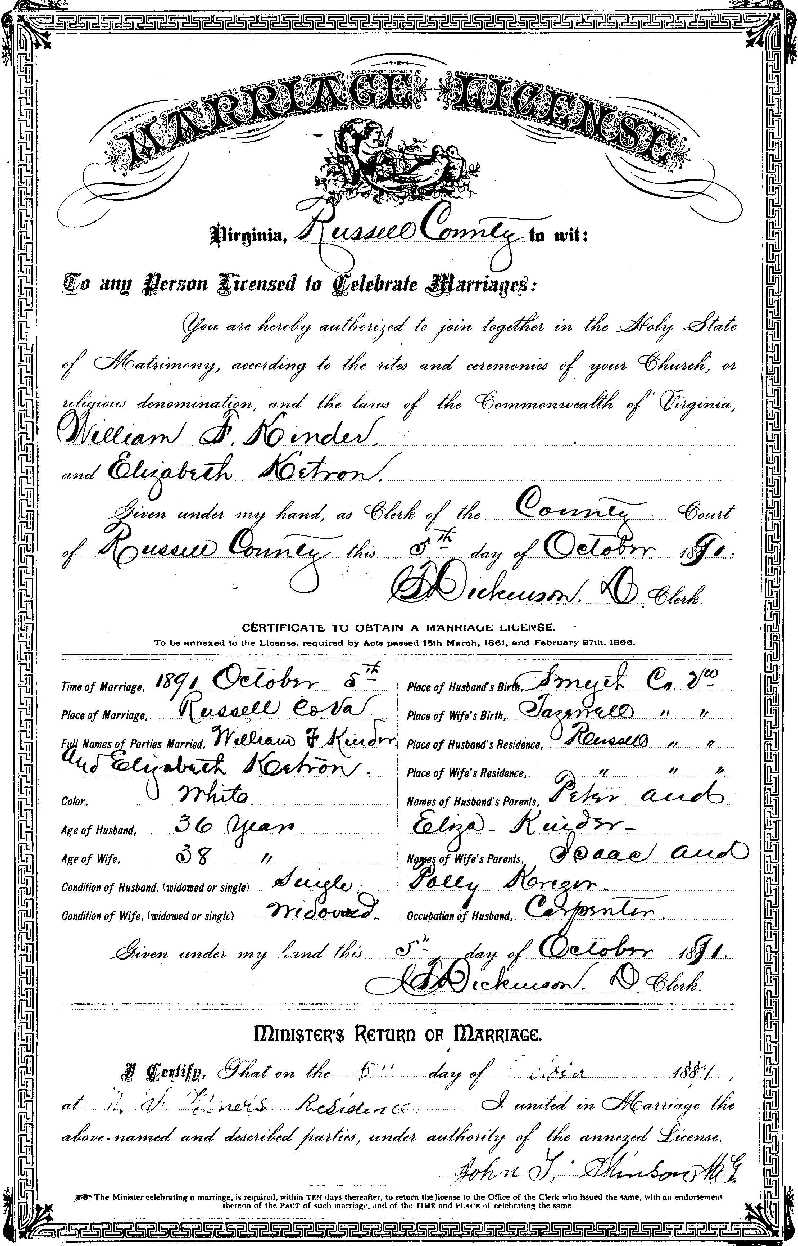 MARRIAGE LICENSE
Virginia, Russell County to wit:
To any Person Licensed to Celebrate Marriages:
You are hereby authorized to join together in the Holy State
of Matrimony, according to the rites and ceremonies of your Church, or
religious denomination, and the laws of the Commonwealth of Virginia,
William F. Kinder
and Elizabeth Ketron.
Given under my hand, as Clerk of the County Court
of Russell County this 5th day of October 1891.
Dickenson. D. Clerk
CERTIFICATE TO OBTAIN A MARRIAGE LICENSE.
To be annexed to the License, required by Acts passed 15th March, 1861, and February 27th, 1866.
Time of Marriage, 1891 October 5th
Place of Marriage, Russell Co Va
Full Names of Parties Married, William F Kinder
And Elizabeth Ketron.
Color, White
Age of Husband, 36 Years
Age of Wife, 38 "
Condition of Husband, (widowed or single) Single
Condition of Wife, (widowed or single) Widowed.
Place of Husband's Birth, Smyth Co. Va
Place of Wife's Birth, Tazewell " "
Place of Husband's Residence, Russell " "
Place of Wife's Residence, " " "
Names of Husband's Parents, Peter and
Eliza Kinder
Names of Wife's Parents, Isaac and
Polly Kreger
Occupation of Husband, Carpenter.
Given under my hand this 5th day of October 1891.
Dickenson. D. Clerk.
MINISTER'S RETURN OF MARRIAGE.
I Certify, That on the 5th day of 1891,
at Residence I united in Marriage the
above-named and described parties, under authority of the annexed License.
John T. Stinson M.G.
The Minister celebrating a marriage, is required, within TEN days thereafter, to return the license to the Office of the Clerk who issued the same, with an endorsement
thereon of the FACT of such marriage, and of the TIME and PLACE of celebrating the same